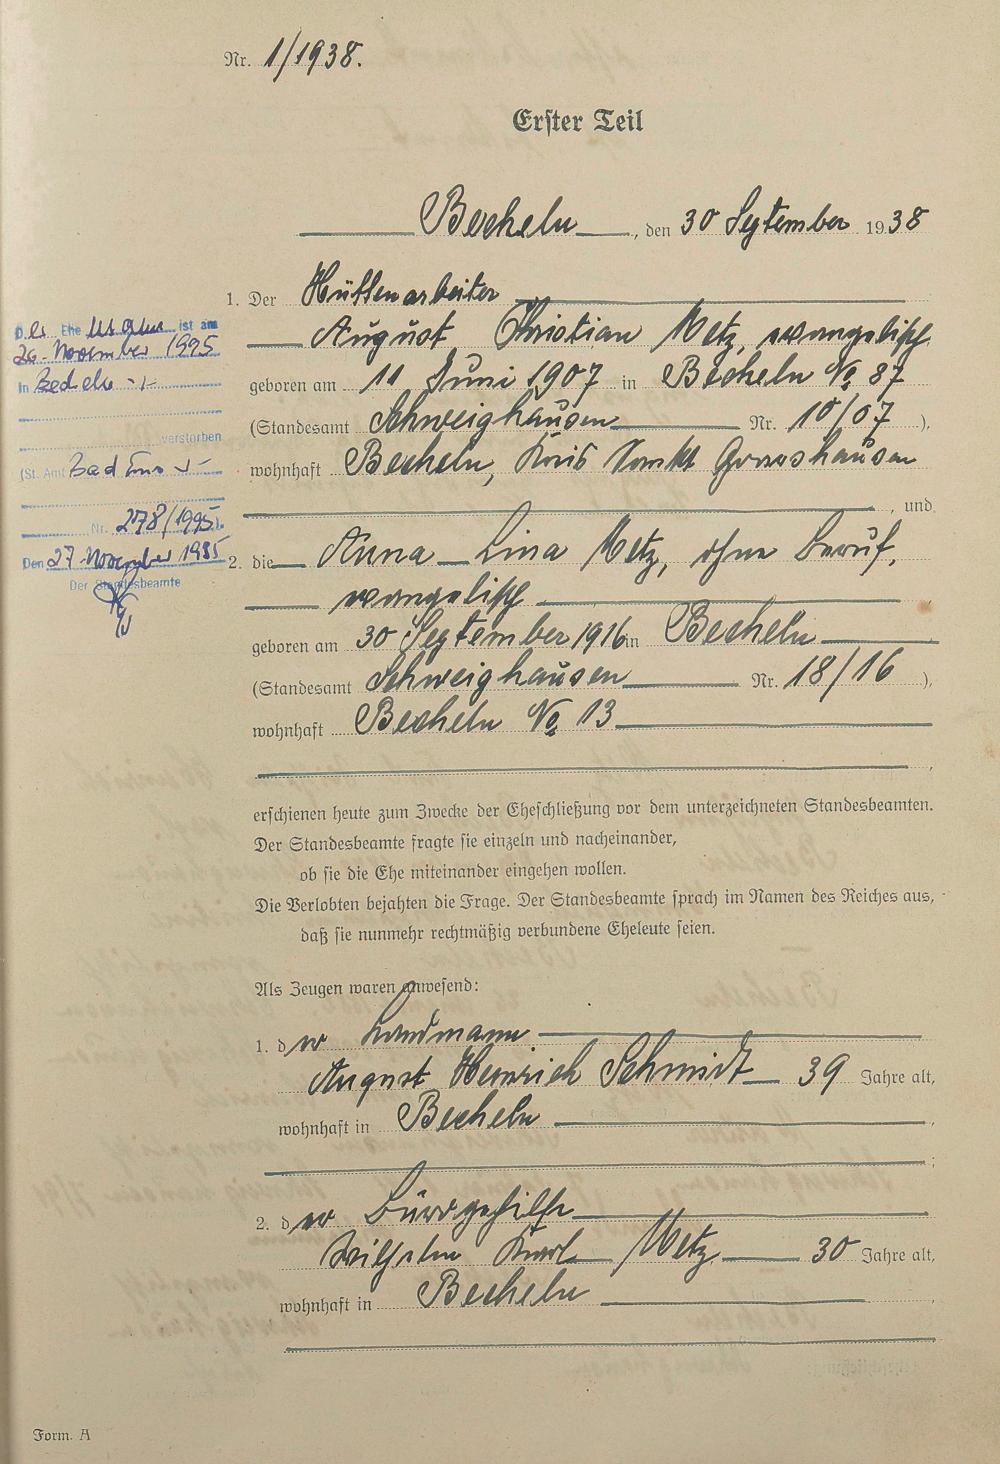 Nr. 1/1938.
Erster Teil
Becheln, den 30 September 1938
1. Der Hüttenarbeiter
August Christian Metz, evangelisch
geboren am 11 Juni 1907 in Becheln No 87
(Standesamt Schweighausen Nr. 10/07 ),
wohnhaft Becheln, Kreis Sankt Goarshausen
, und
2. die Anna Lina Metz, ohne Beruf,
evangelisch
geboren am 30 September 1916 in Becheln
(Standesamt Schweighausen Nr. 18/16 ),
wohnhaft Becheln No 13
,
erschienen heute zum Zwecke der Eheschließung vor dem unterzeichneten Standesbeamten.
Der Standesbeamte fragte sie einzeln und nacheinander,
ob sie die Ehe miteinander eingehen wollen.
Die Verlobten bejahten die Frage. Der Standesbeamte sprach im Namen des Reiches aus,
daß sie nunmehr rechtmäßig verbundene Eheleute seien.
Als Zeugen waren anwesend:
1. der Landmann
August Heinrich Schmidt 39 Jahre alt,
wohnhaft in Becheln ,
;
2. der Bürogehilfe
Wilhelm Karl Metz 30 Jahre alt,
wohnhaft in Becheln ,
Form. A
Ehe ist am
26. November 1995
in Becheln
verstorben
(St. Amt Bad Ems
Nr. 278/1995).
Den 27. November 1995
Der Standesbeamte